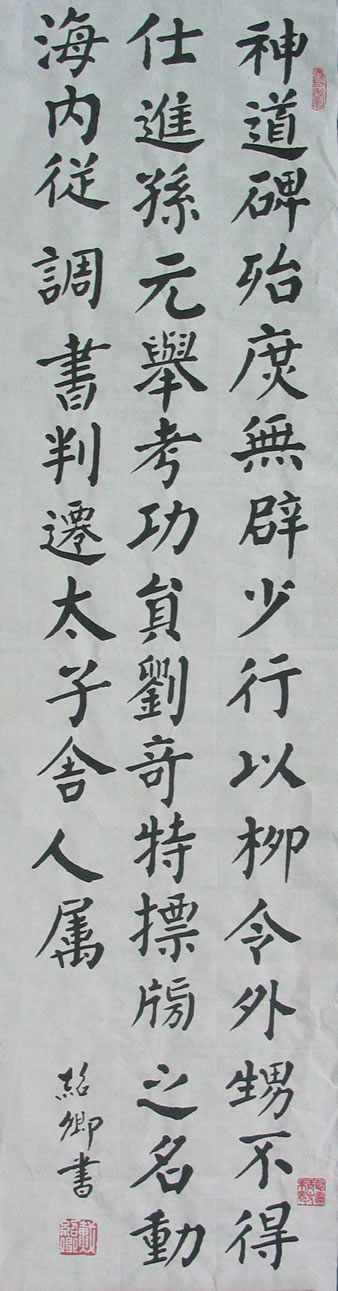 神道碑殆庶無辟少行以柳令外甥不得
仕進孫元舉考功貟劉竒特摽牓之名動
海内従調書判遷太子舎人属
紹卿書